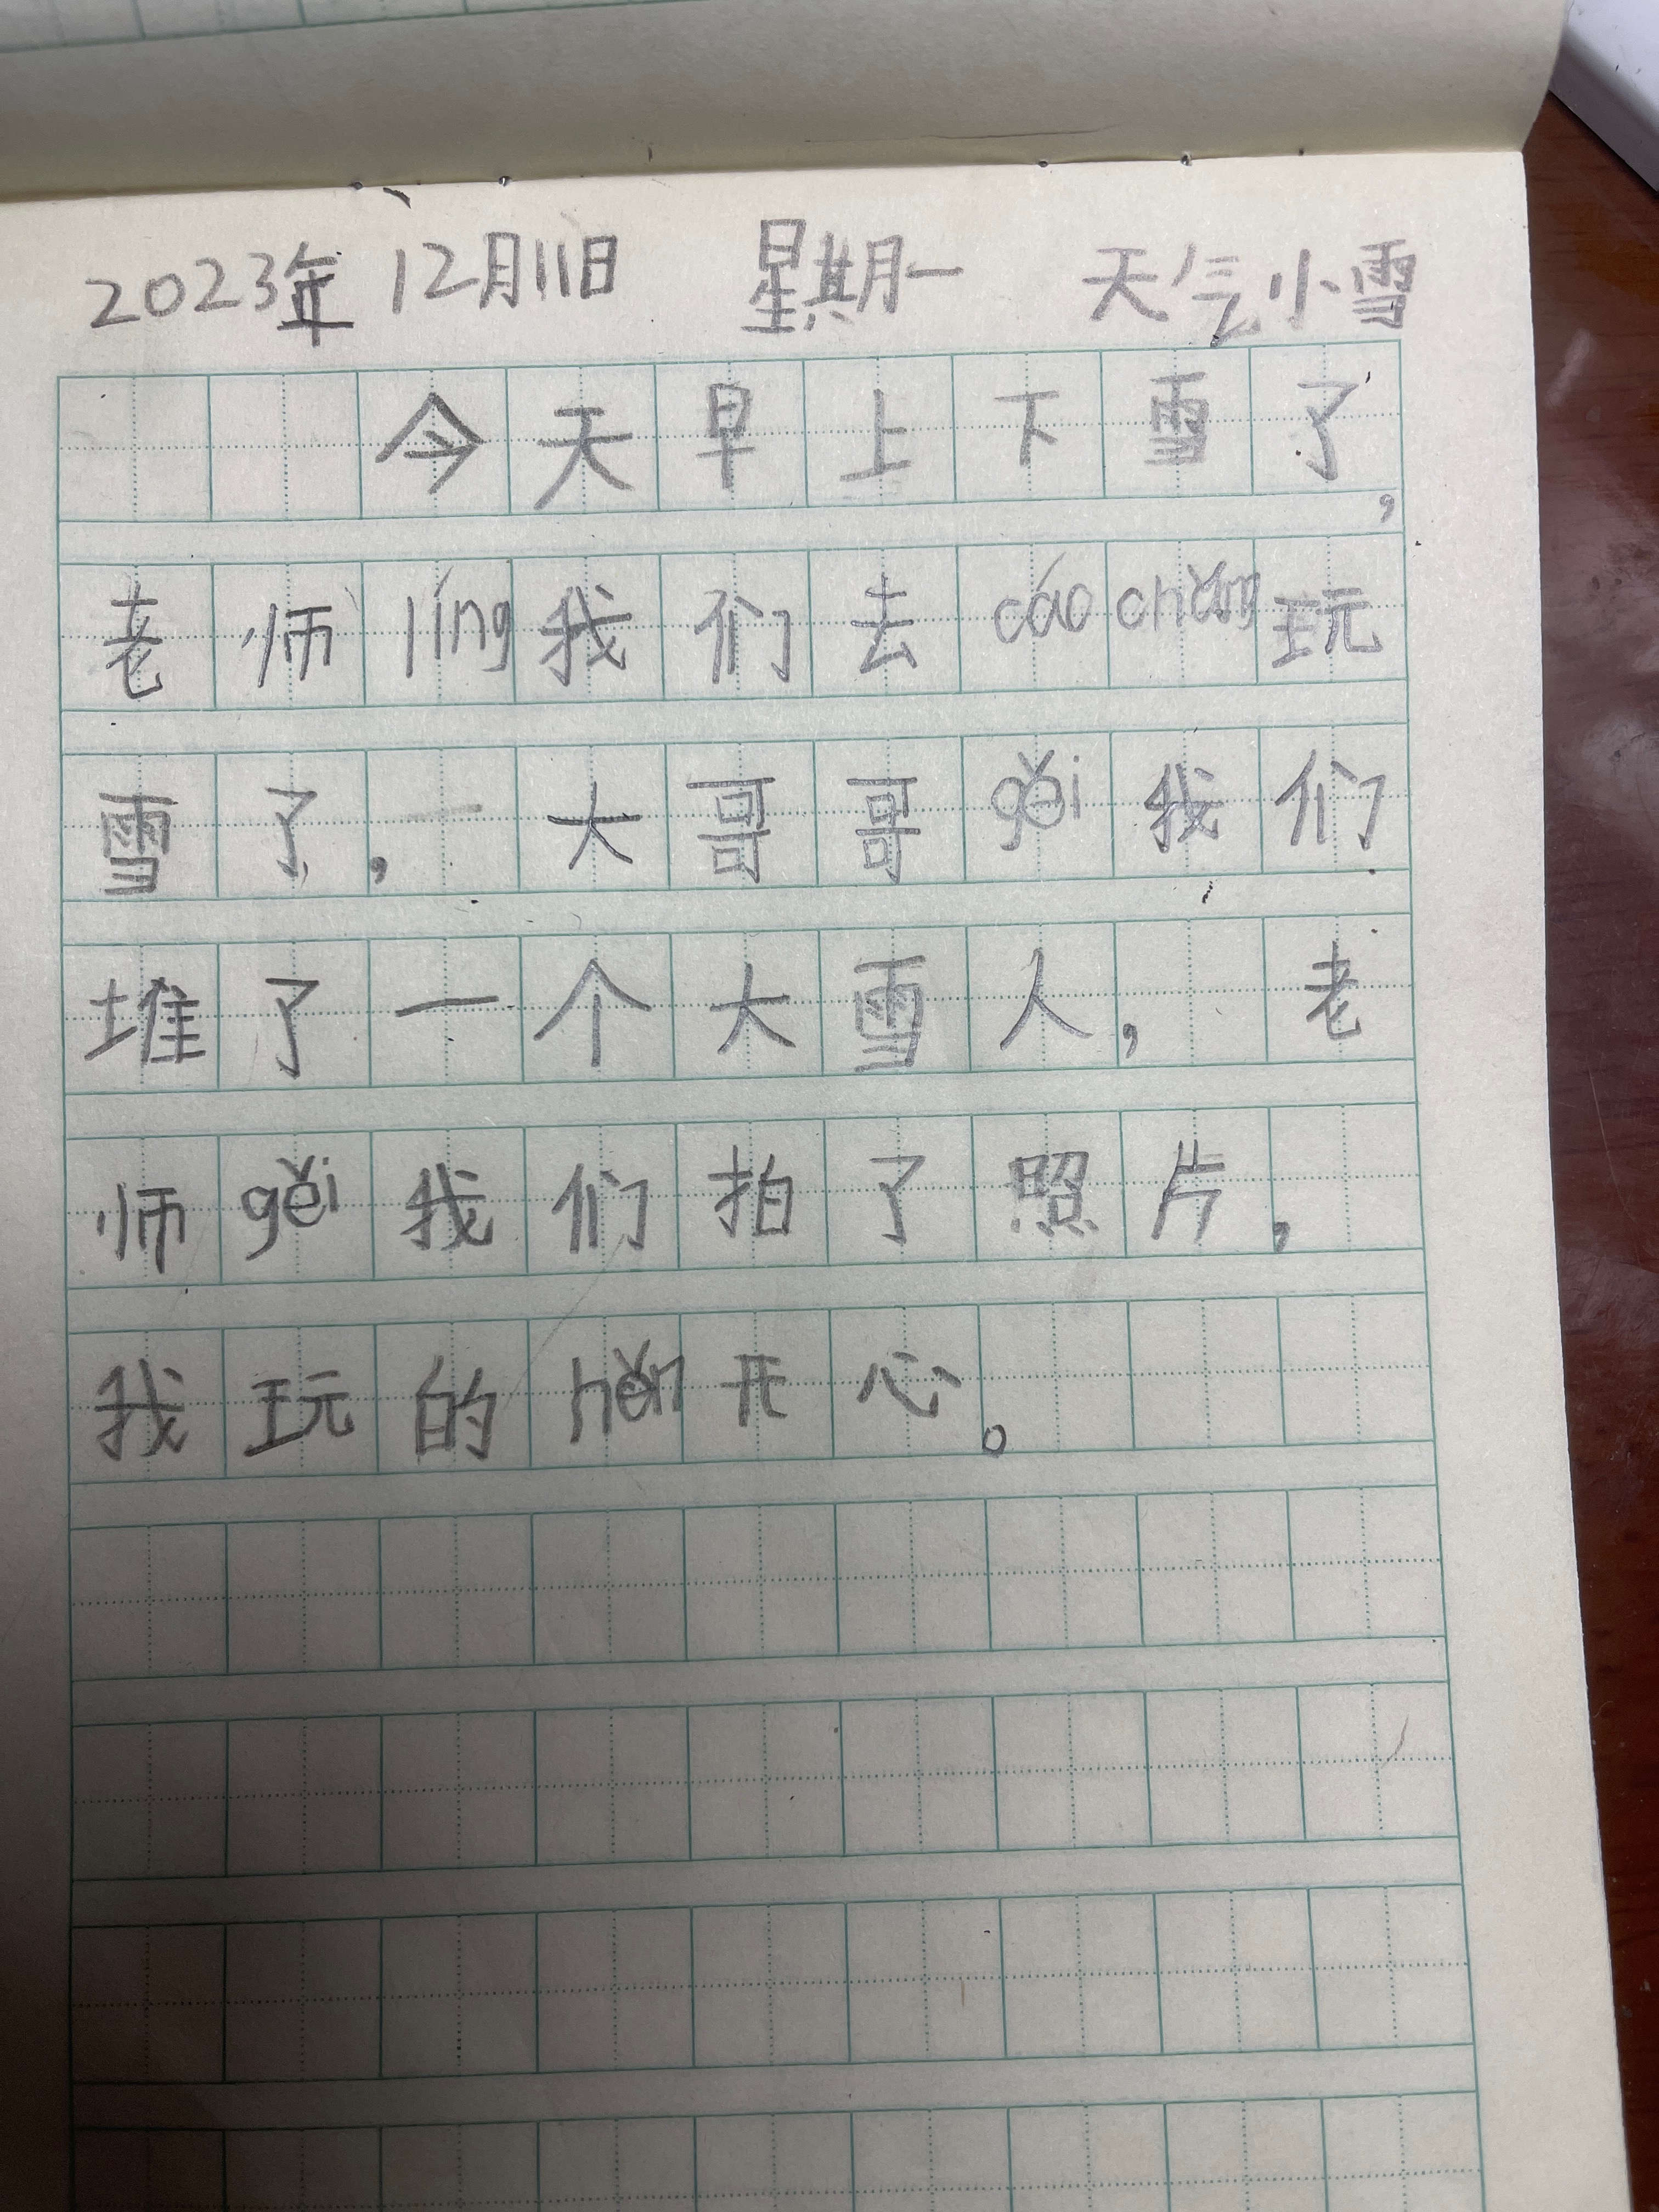 2023年 12月11日 星期一 天气小雪
今天早上下雪了，
老师líng我们去cáo chǎng玩
雪了，一大哥哥gěi我们
堆了一个大雪人，老
师gěi我们拍了照片，
我玩的hěn开心。